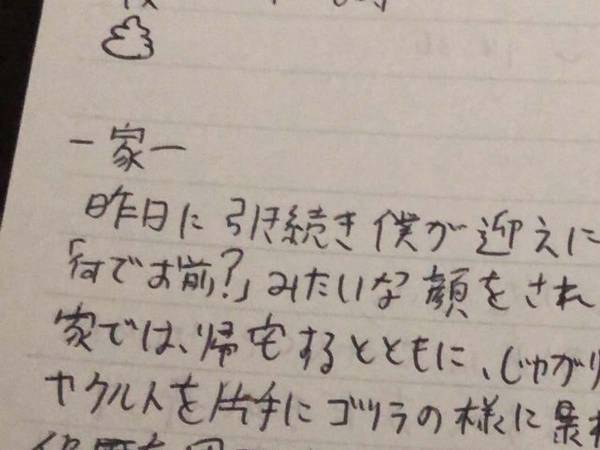 －家－
昨日に引き続き僕が迎えに
「何でお前?」みたいな顔をされ
家では、帰宅するとともに、じゃがり
ヤクルトを片手にゴツラの様に暴れ